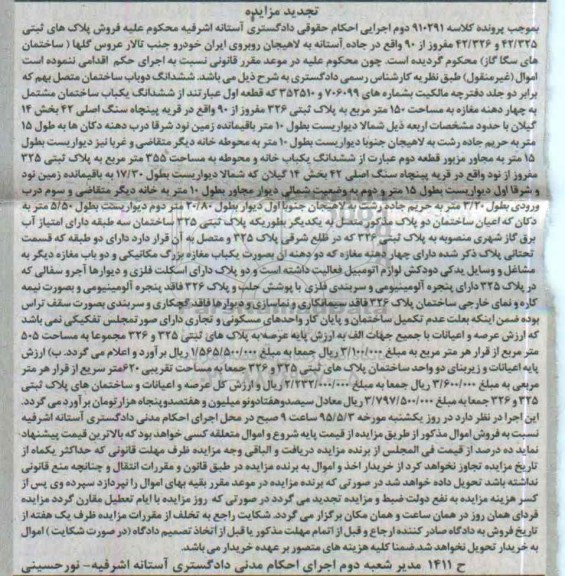 تجدید مزایده
بموجب پرونده کلاسه ۹۱۰۲۹۱ دوم اجرایی احکام حقوقی دادگستری آستانه اشرفیه محکوم علیه فروش پلاک های ثبتی
۴۲/۳۲۵ و ۴۲/۳۲۶ مفروز از ۹۰ واقع در جاده آستانه به لاهیجان روبروی ایران خودرو جنب تالار عروس گلها ( ساختمان
های سگا گاز) محکوم گردیده است. چون محکوم علیه در موعد مقرر قانونی نسبت به اجرای حکم اقدامی ننموده است
اموال (غیرمنقول) طبق نظریه کارشناس رسمی دادگستری به شرح ذیل می باشد. ششدانگ دوباب ساختمان متصل بهم که
برابر دو جلد دفترچه مالکیت بشماره های ۷۰۶۰۹۹ و ۳۵۲۵۱۰ که قطعه اول عبارتند از ششدانگ یکباب ساختمان مشتمل
به چهار دهنه مغازه به مساحت ۱۵۰ متر مربع به پلاک ثبتی ۳۲۶ مفروز از ۹۰ واقع در قریه پینچاه سنگ اصلی ۴۲ بخش ۱۴
گیلان با حدود مشخصات اربعه ذیل شمالا دیواریست بطول ۱۰ متر باقیمانده زمین نود شرقا درب دهنه دکان ها به طول ۱۵
متر به حریم جاده رشت به لاهیجان جنوبا دیواریست بطول ۱۰ متر به محوطه خانه دیگر متقاضی و غربا نیز دیواریست بطول
۱۵ متر به مجاور مزبور قطعه دوم عبارت از ششدانگ یکباب خانه و محوطه به مساحت ۳۵۵ متر مربع به پلاک ثبتی ۳۲۵
مفروز از نود واقع در قریه پینچاه سنگ اصلی ۴۲ بخش ۱۴ گیلان که شمالا دیواریست بطول ۱۷/۳۰ به باقیمانده زمین نود
و شرقا اول دیواریست بطول ۱۵ متر و دوم به وضعیت شمالی دیوار مجاور بطول ۱۰ متر به خانه دیگر متقاضی و سوم درب
ورودی بطول ۳/۲۰ متر به حریم جاده رشت به لاهیجان جنوبا اول دیوار بطول ۲۰/۸۰ متر دوم دیواریست بطول ۵/۵۰ متر به
دکان که اعیان ساختمان دو پلاک مذکور متصل به یکدیگر بطوریکه پلاک ثبتی ۳۲۵ ساختمان سه طبقه دارای امتیاز آب
برق گاز شهری منصوبه به پلاک ثبتی ۳۲۶ که در ظلع شرقی پلاک ۳۲۵ و متصل به آن قرار دارد دارای دو طبقه که قسمت
تحتانی پلاک ذکر شده دارای چهار دهنه مغازه که دو دهنه آن بصورت یکباب مغازه بزرگ مکانیکی و دو باب مغازه دیگر به
مشاغل و وسایل یدکی دودکش لوازم اتومبیل فعالیت داشته است و دو پلاک دارای اسکلت فلزی و دیوارها آجرو سفالی که
در پلاک ۳۲۵ دارای پنجره آلومینیومی و سربندی فلزی با پوشش حلب و پلاک ۳۲۶ فاقد پنجره آلومینیومی و بصورت نیمه
کاره و نمای خارجی ساختمان پلاک ۳۲۶ فاقد سیمانکاری و نماسازی و دیوارها فاقد گچکاری و سربندی بصورت سقف تراس
بوده ضمن اینکه بعلت عدم تکمیل ساختمان و پایان کار واحدهای مسکونی و تجاری دارای صورتمجلس تفکیکی نمی باشد
و ارزش عرصه و اعیانات با جمیع جهات الف به ارزش پایه عرصه به پلاک های ثبتی ۳۲۵ و ۳۲۶ مجموعا به مساحت ۵۰۵
متر مربع از قرار هر متر مربع به مبلغ ۳/۱۰۰/۰۰۰ ریال جمعا به مبلغ ۱/۵۶۵/۵۰۰/۰۰۰ ریال بر آورد و اعلام می گردد. ب) ارزش
پایه اعیانات و زیربنای دو واحد ساختمان پلاک های ثبتی ۳۲۵ و ۳۲۶ جمعا به مساحت تقریبی ۶۲۰ متر سریع از قرار هر متر
مربعی به مبلغ ۳/۶۰۰/۰۰۰ ریال جمعا به مبلغ ۲/۲۳۲/۰۰۰/۰۰۰ ریال و ارزش کل عرصه و اعیانات و ساختمان های پلاک ثبتی
۳۲۵ و ۳۲۶ جمعا به مبلغ ۳/۷۹۷/۵۰۰/۰۰۰ ریال معادل سیصدوهفتادونو میلیون و هفتصدوپنجاه هزار تومان برآورد می گردد.
این اجرا در نظر دارد در روز یکشنبه مورخه ۹۵/۵/۳ ساعت ۹ صبح در محل اجرای احکام مدنی دادگستری آستانه اشرفیه
نسبت به فروش اموال مذکور از طریق مزایده از قیمت پایه شروع و اموال متعلقه کسی خواهد بود که بالاترین قیمت پیشنهاد
نماید ده درصد از قیمت فی المجلس از برنده مزایده دریافت و الباقی وجه مزایده ظرف مهلت قانونی که حداکثر یکماه از
تاریخ مزایده تجاوز نخواهد کرد از خریدار اخذ و اموال به برنده مزایده در طبق قانون و مقررات انتقال و چنانچه منع قانونی
نداشته باشد تحویل داده خواهد شد در صورتی که برنده مزایده در موعد مقرر بقیه بهای اموال را نپردازد سپرده وی پس از
کسر هزینه مزایده به نفع دولت ضبط و مزایده تجدید می گردد در صورتی که روز مزایده با ایام تعطیل مقارن گردد مزایده
فردای همان روز در همان ساعت و همان مکان برگزار می گردد. شکایت راجع به تخلف از مقررات مزایده ظرف یک هفته از
تاریخ فروش به دادگاه صادر کننده ارجاع و قبل از اتمام مهلت مذکور یا قبل از اتخاذ تصمیم دادگاه (در صورت شکایت) اموال
به خریدار تحویل نخواهد شد.ضمنا کلیه هزینه های متصور بر عهده خریدار می باشد.
ح ۱۴۱۱ مدیر شعبه دوم اجرای احکام مدنی دادگستری آستانه اشرفیه- نورحسینی